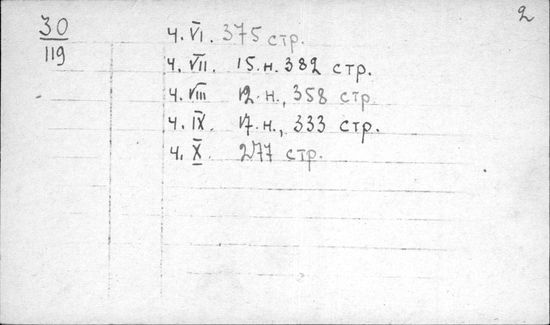 2
30
119
ч. VI. 375 стр.
ч. VII. 15.н. 382 стр.
ч. VIII 12.н., 358 стр
ч. IX. 17.н., 333 стр.
ч. X. 277 стр.